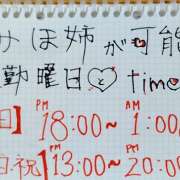 みほ姉が可能
勤曜日♡とtime
日】PM 18:00~ AM 1:00
日祝】PM 13:00~ PM 20:00